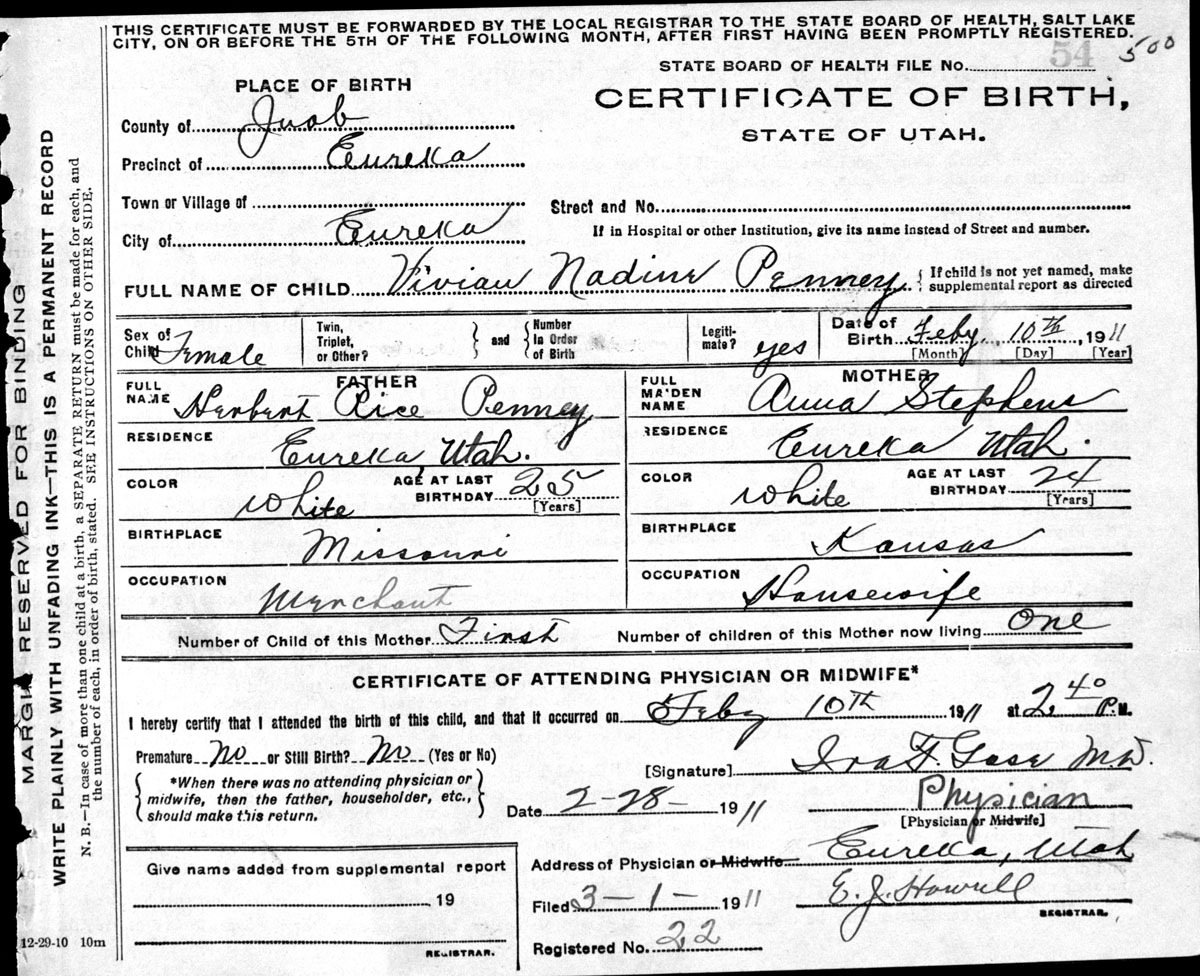 THIS CERTIFICATE MUST BE FORWARDED BY THE LOCAL REGISTRAR TO THE STATE BOARD OF HEALTH, SALT LAKE
CITY, ON OR BEFORE THE 5TH OF THE FOLLOWING MONTH, AFTER FIRST HAVING BEEN PROMPTLY REGISTERED.
500
STATE BOARD OF HEALTH FILE No. 54
PLACE OF BIRTH
CERTIFICATE OF BIRTH,
STATE OF UTAH.
County of Juab
Precinct of Eureka
Town or Village of
Street and No.
City of Eureka
If in Hospital or other Institution, give its name instead of Street and number.
FULL NAME OF CHILD Vivian Nadine Penney { If child is not yet named, make
supplemental report as directed
Sex of
Child Female
Twin,
Triplet,
or Other?
} and {
Number
In Order
of Birth
Legiti-
mate? yes
Date of
Birth Feby 10th, 1911
[Month] [Day] [Year]
FATHER
FULL
NAME Herbert Rice Penney
MOTHER
FULL
MAIDEN
NAME Anna Stephens
RESIDENCE Eureka Utah.
RESIDENCE Eureka Utah.
COLOR White
AGE AT LAST
BIRTHDAY 25
[Years]
COLOR White
AGE AT LAST
BIRTHDAY 24
[Years]
BIRTHPLACE Missouri
BIRTHPLACE Kansas
OCCUPATION Merchant
OCCUPATION Housewife
Number of Child of this Mother First Number of children of this Mother now living One
CERTIFICATE OF ATTENDING PHYSICIAN OR MIDWIFE*
I hereby certify that I attended the birth of this child, and that it occurred on Feby 10th 1911 at 2 40 P.M.
Premature No or Still Birth? No (Yes or No)
[Signature] Ira F. M.D.
{ *When there was no attending physician or
midwife, then the father, householder, etc.,
should make this return. }
Date 2-28- 1911
Physician
[Physician or Midwife]
Address of Physician or Midwife Eureka, Utah
Give name added from supplemental report
19
REGISTRAR.
Filed 3-1- 1911 E. J. Howell
REGISTRAR.
Registered No. 22
12-29-10 10m
MARGIN RESERVED FOR BINDING
WRITE PLAINLY WITH UNFADING INK—THIS IS A PERMANENT RECORD
N. B.—In case of more than one child at a birth, a SEPARATE RETURN must be made for each, and
the number of each, in order of birth, stated. SEE INSTRUCTIONS ON OTHER SIDE.